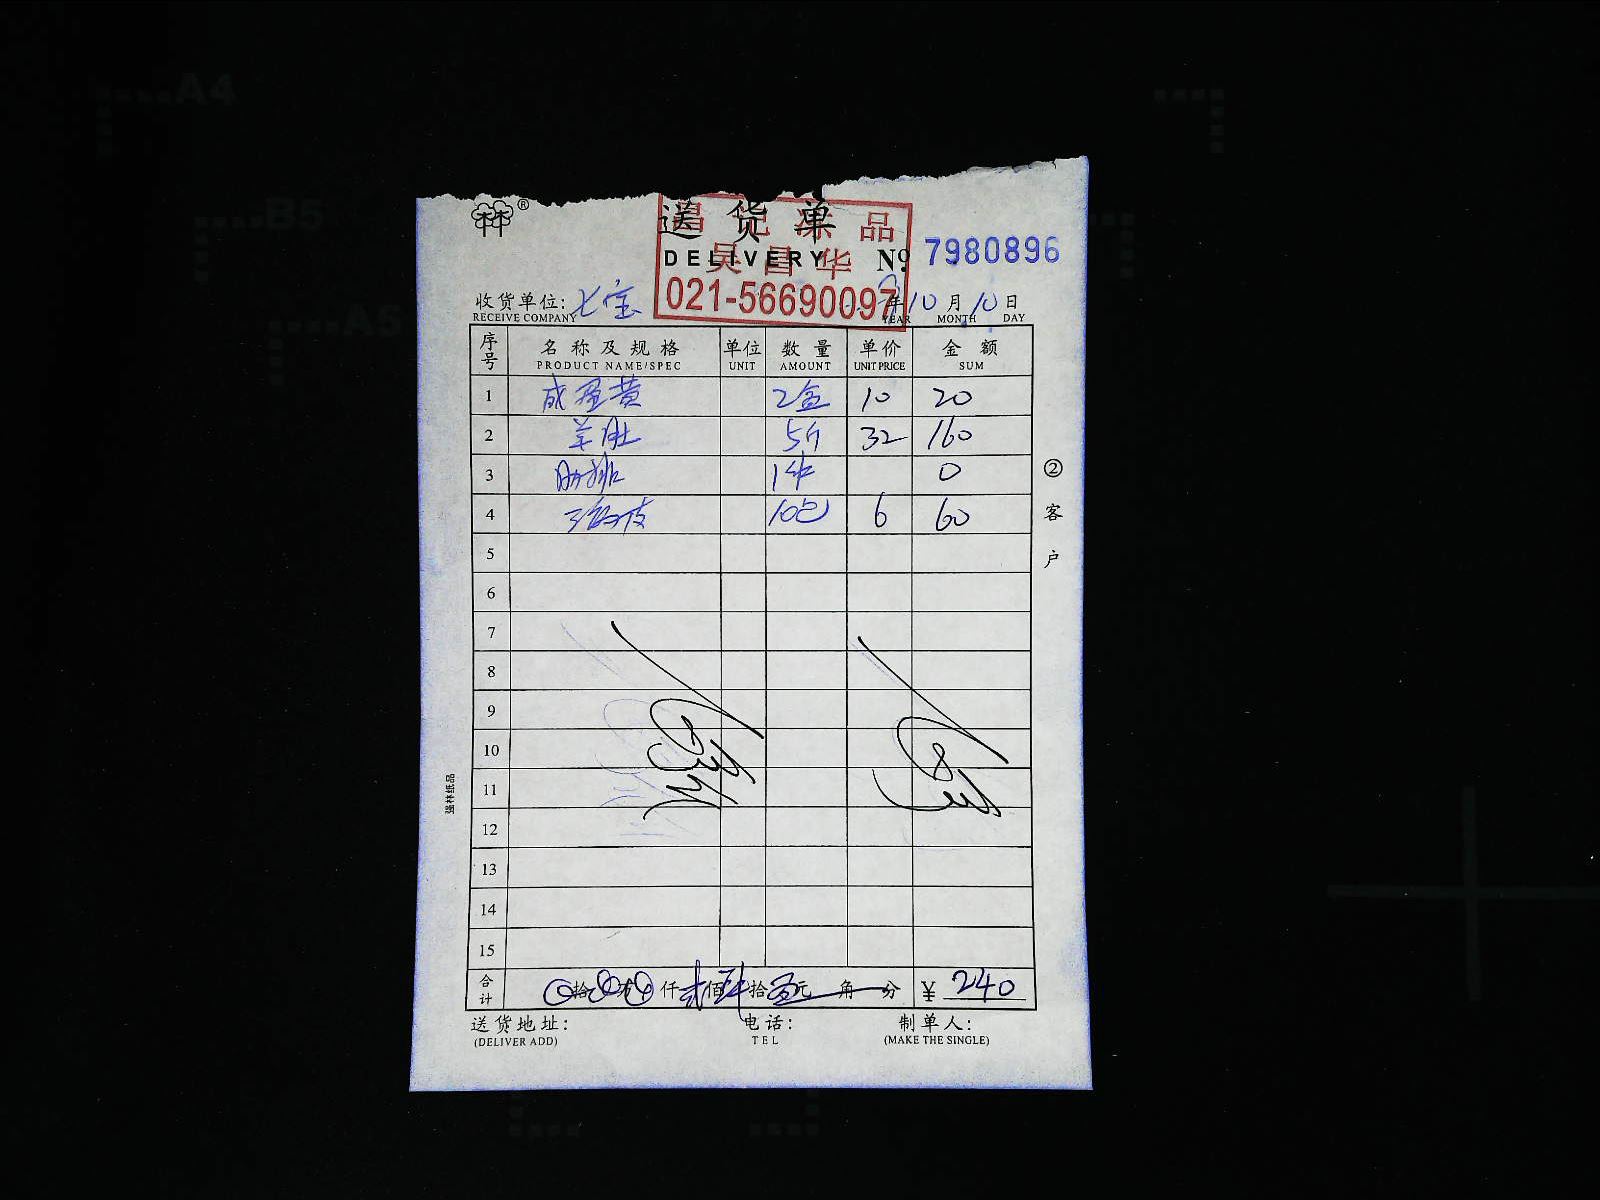 A4
B5
A5
林®
送货单
DELIVERY
昌 冻品
吴昌华
021-56690097
№ 7980896
收货单位: 七宝 年 10 月 10 日
RECEIVE COMPANY YEAR MONTH DAY
序号 名称及规格 单位 数量 单价 金额
PRODUCT NAME/SPEC UNIT AMOUNT UNIT PRICE SUM
1 咸蛋黄 2盒 10 20
2 羊肚 5斤 32 160
3 肋排 1件 0
4 10包 6 60
5
6
7
8
9
10
11
12
13
14
15
合计 拾 万 仟 贰 佰 肆 拾 零 元 角 分 ¥ 240
送货地址: 电话: 制单人:
(DELIVER ADD) TEL (MAKE THE SINGLE)
②客户
强林纸品